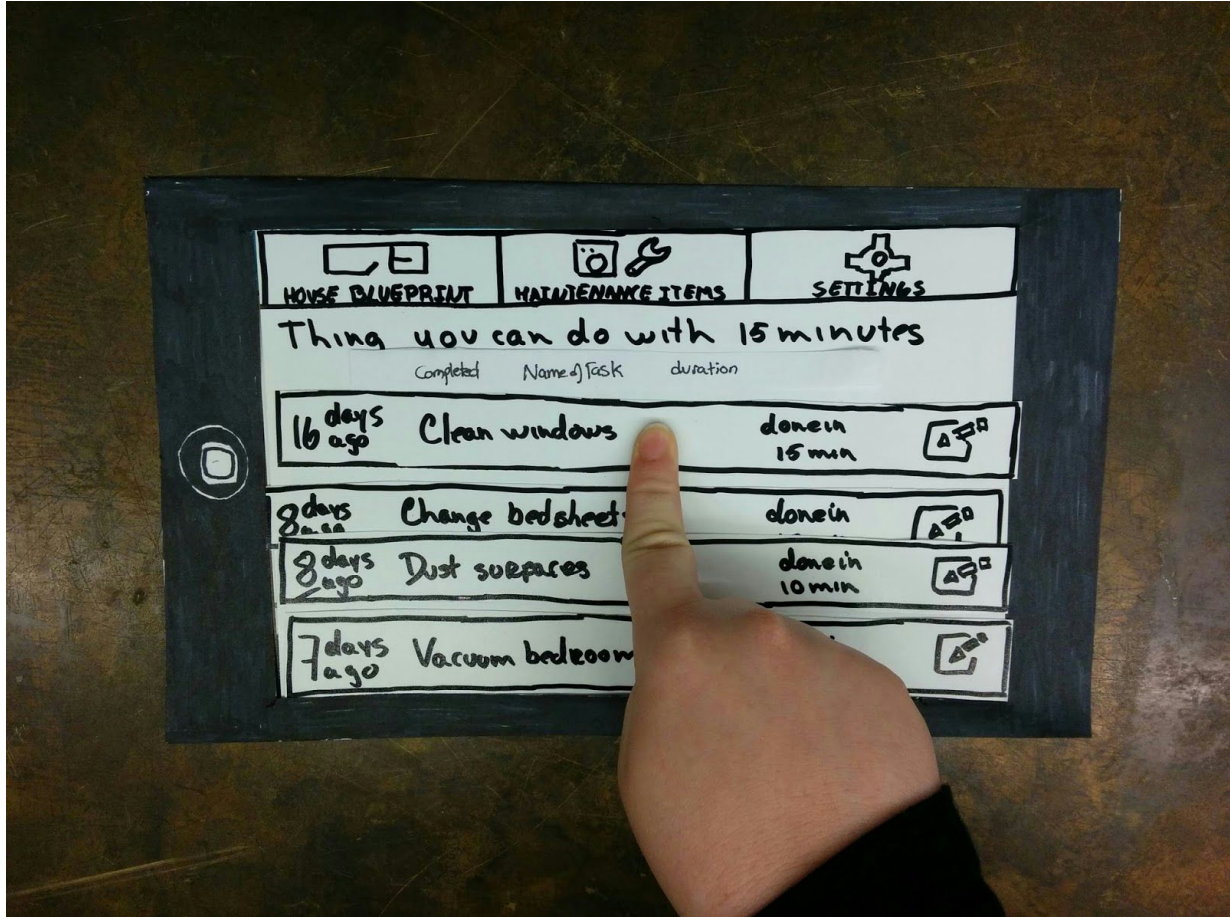 HOUSE BLUEPRINT
MAINTENANCE ITEMS
SETTINGS
Thing you can do with 15 minutes
Completed Name of Task duration
16 days ago Clean windows done in 15 min
8 days ago Change bedsheet done in
8 days ago Dust surfaces done in 10 min
7 days ago Vacuum bedroom